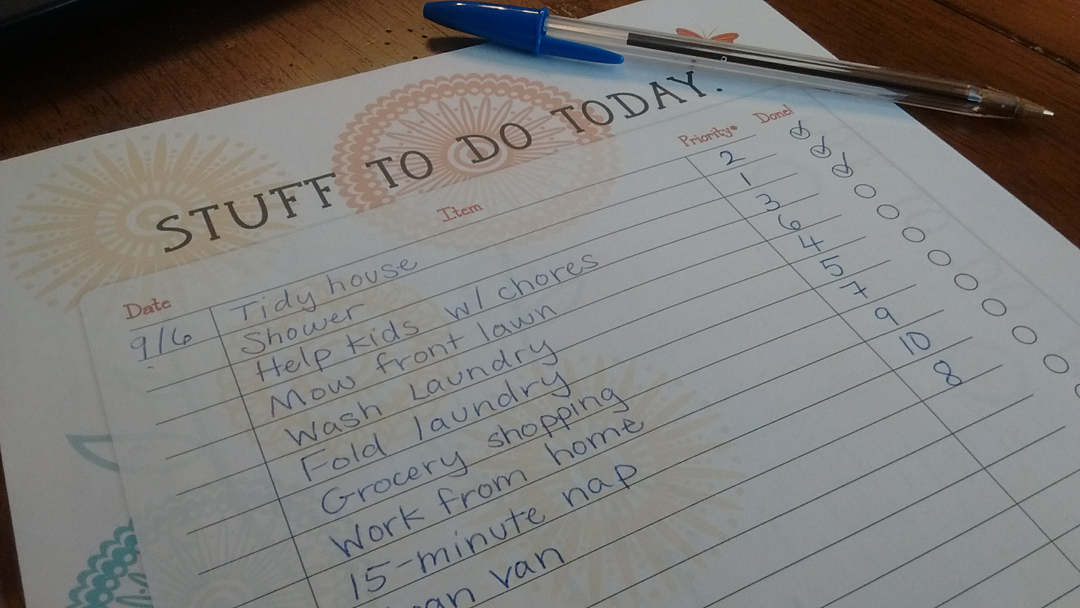 STUFF TO DO TODAY.
Date Item Priority* Done!
9/6 Tidy house 2
Shower 1
Help kids w/ chores 3
Mow front lawn 6
Wash Laundry 4
Fold laundry 5
Grocery shopping 7
Work from home 9
15-minute nap 10
van 8